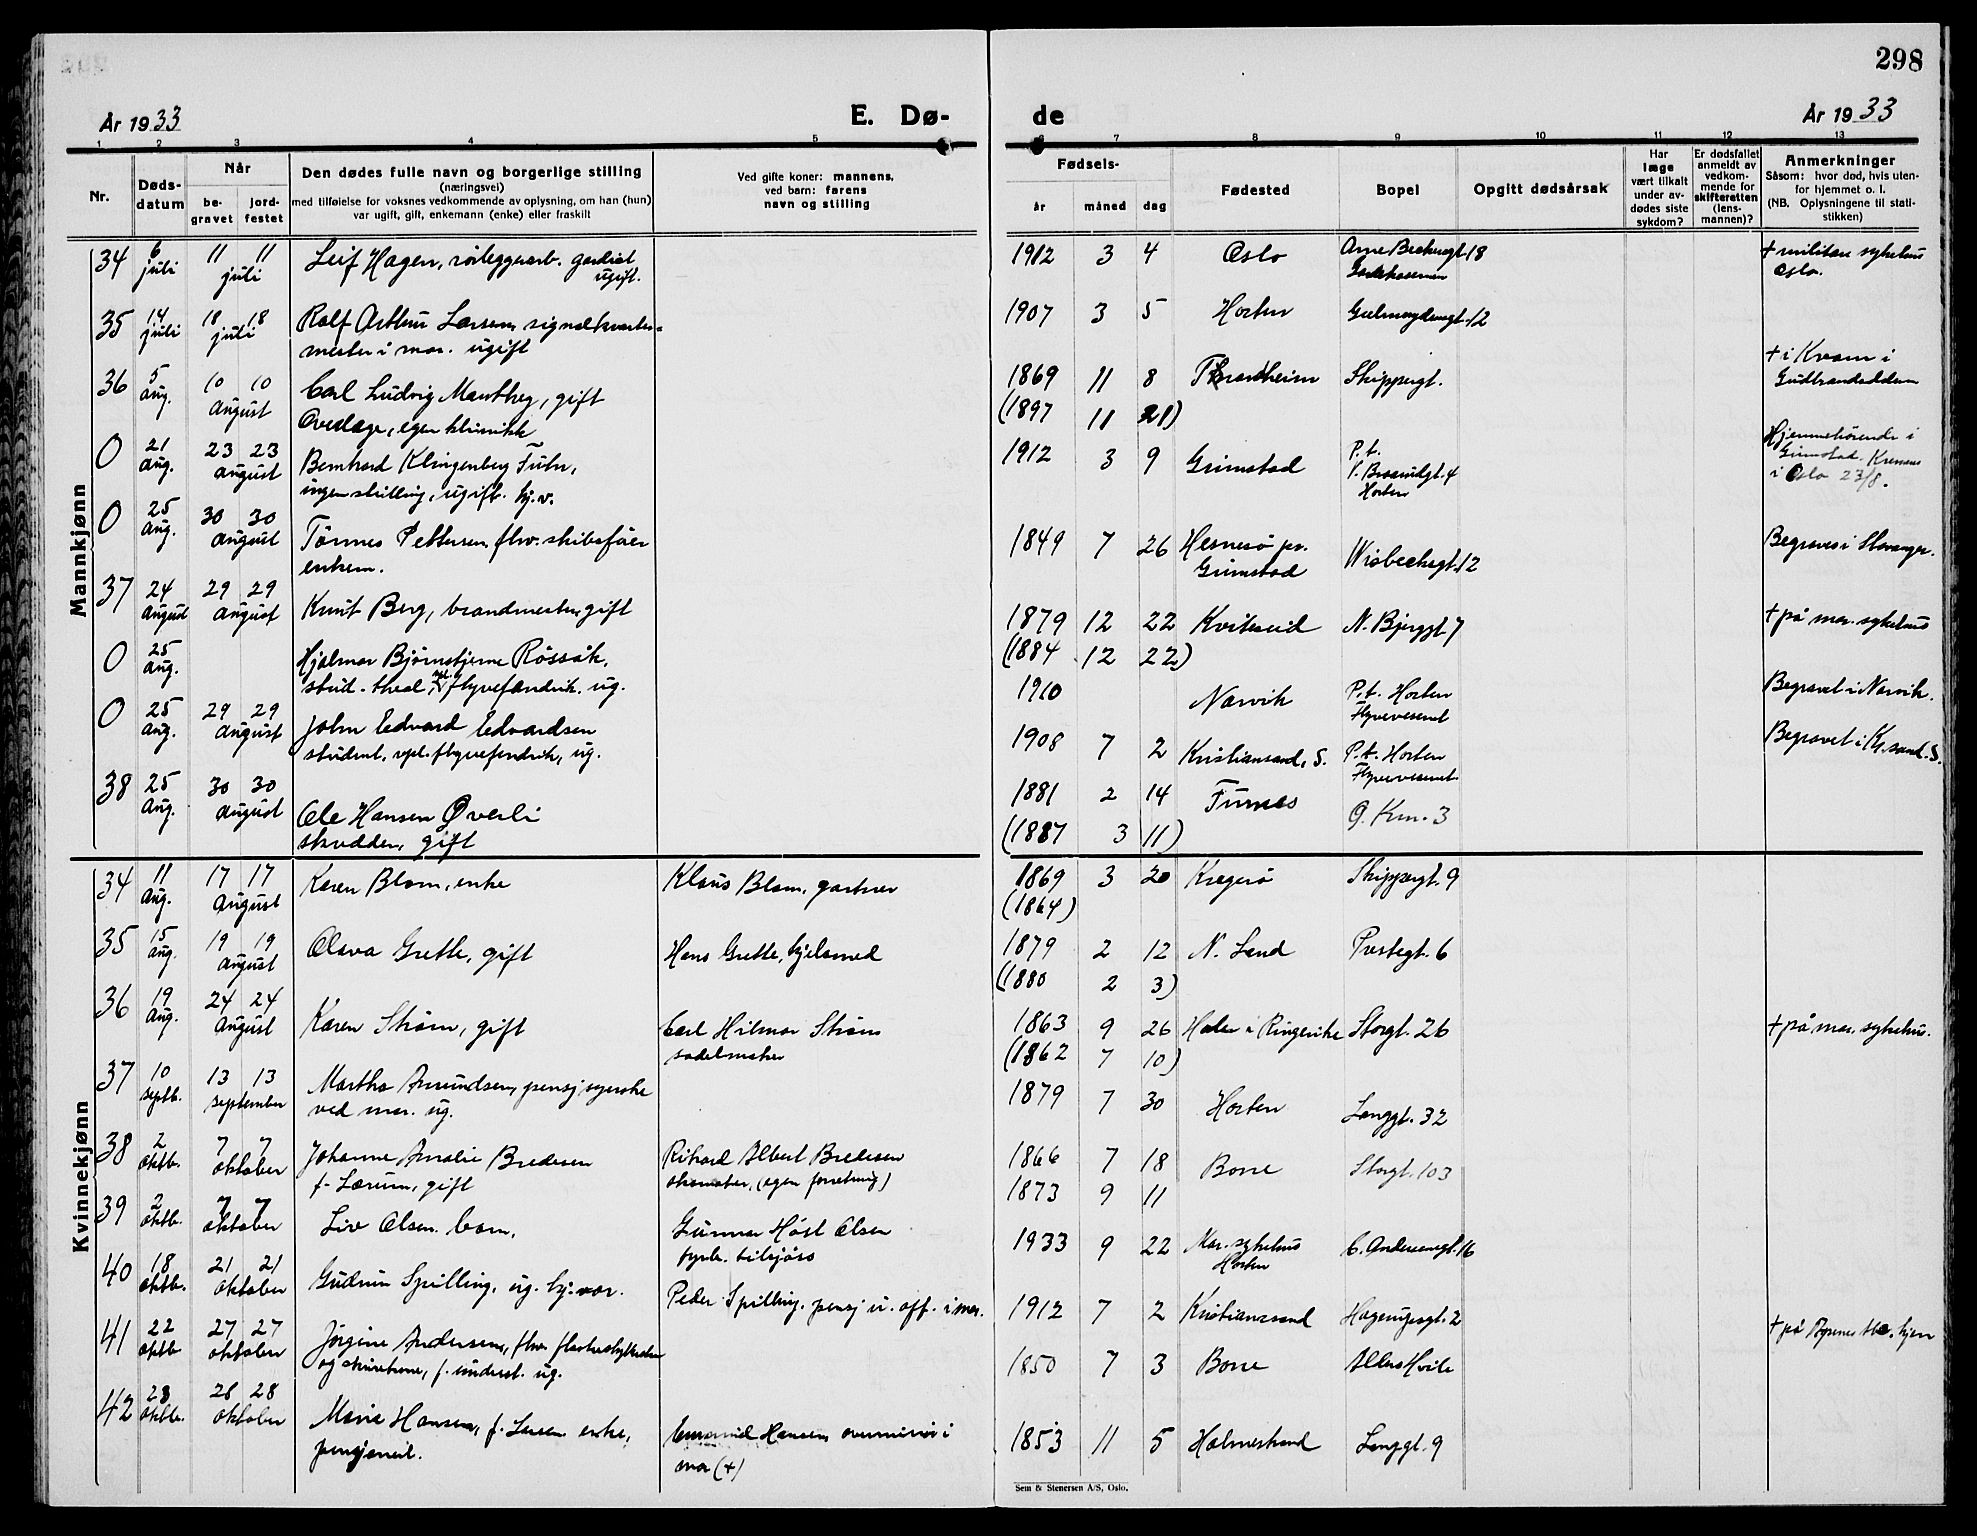 298
År 1933
E. Dø-
de
År 1933
1 2 3 4 5 6 7 8 9 10 11 12 13
Nr.
Døds-
datum
Når
be-
gravet
jord-
festet
Den dødes fulle navn og borgerlige stilling
(næringsvei)
med tilføielse for voksnes vedkommende av oplysning, om han (hun)
var ugift, gift, enkemann (enke) eller fraskilt
Ved gifte koner: mannens,
ved barn: farens
navn og stilling
Fødsels-
år måned dag
Fødested
Bopel
Opgitt dødsårsak
Har
læge
vært tilkalt
under av-
dødes siste
sykdom?
Er dødsfallet
anmeldt av
vedkom-
mende for
skifteretten
(lens-
mannen)?
Anmerkninger
Såsom: hvor død, hvis uten-
for hjemmet o. l.
(NB. Oplysningene til stati-
stikken)
Mannkjønn
34 6 juli 11 11 juli Leif Hagen, rørleggerarb. gardist 1912 3 4 Oslo 18 + militær sykehus
ugift. Oslo.
35 14 juli 18 18 juli Rolf Arthur Larsen, signalkvarter- 1907 3 5 Horten 12
mester i mar. ugift
36 5 aug. 10 10 august Carl Ludvig Manthey, gift 1869 11 8 Trondheim Skippergt. + i Kvam i
Overlæge, egen klinikk (1897 11 21) Gudbrandsdalen
0 21 aug. 23 23 august Bernhard Klingenberg Fuhr, 1912 3 9 Grimstad P.t. Hjemmehørende i
ingen stilling, ugift. hj.v. 4 Horten Grimstad. Kremeres
i Oslo 23/8.
0 25 aug. 30 30 august Tønnes Pettersen, fhv. skibsfører 1849 7 26 Hesnesø pr. Wisbechsgt. 12 Begraves i Stavanger.
enkem. Grimstad
37 24 august 29 29 august Knut Berg, brandmester, gift 1879 12 22 Kviteseid N. Bjerggt 7 + på mar. sykehus
(1884 12 22)
0 25 aug. Hjalmar Bjørnstjerne Røssak,
stud. theol, vpl. flyvefendrik. ug. 1910 Narvik P.t. Horten Begravet i Narvik.
Flyvevesenet
0 25 aug. 29 29 august John Edvard Edvardsen 1908 7 2 Kristiansand, S. P.t. Horten Begravet i Kr.sand. S.
student, vpl. flyvefendrik, ug. Flyvevesenet
38 25 aug. 30 30 august Ole Hansen Øverli 1881 2 14 Furnes 3
skredder, gift (1887 3 11)
Kvinnekjønn
34 11 aug. 17 17 august Karen Blom, enke Klaus Blom, gartner 1869 3 20 Kragerø Skippergt. 9
(1864)
35 15 aug. 19 19 august Olava Grette, gift Hans Grette, hjelsmed 1879 2 12 N. Land Prestegt. 6
(1880 2 3)
36 19 aug. 24 24 august Karen Strøm, gift Carl Hilmar Strøm 1863 9 26 Hole i Ringerike Storgt. 26 + på mar. sykehus.
sadelmaker (1862 7 10)
37 10 septb. 13 13 september Martha Amundsen, pensj syerske 1879 7 30 Horten Langgt. 32
ved mar. ug.
38 2 oktb. 7 7 oktober Johanne Amalie Bredesen Rikard Albert Bredesen 1866 7 18 Borre Storgt. 103
f. Lærum, gift skomaker, (egen forretning) 1873 9 11
39 2 oktb. 7 7 oktober Liv Olsen. barn. Gunnar Høst Olsen 1933 9 22 Mar. sykehus C. Andersensgt. 16
fyrb. tilsjøss Horten
40 18 oktb. 21 21 oktober Gudrun Spilling, ug. hj. vær. Peder Spilling, pensj u. off. i mar. 1912 7 2 Kristiansand 2
41 22 oktb 27 27 oktober Jørgine Andersen, fhv.
og f. underst. ug. 1850 7 3 Borre Alders Hvile
42 23 oktb. 28 28 oktober Marie Hansen, f. Larsen enke, Hansen, overminør i 1853 11 5 Holmestrand Langgt. 9
pensjoneil. mar (+)
Sem & Stenersen A/S, Oslo.